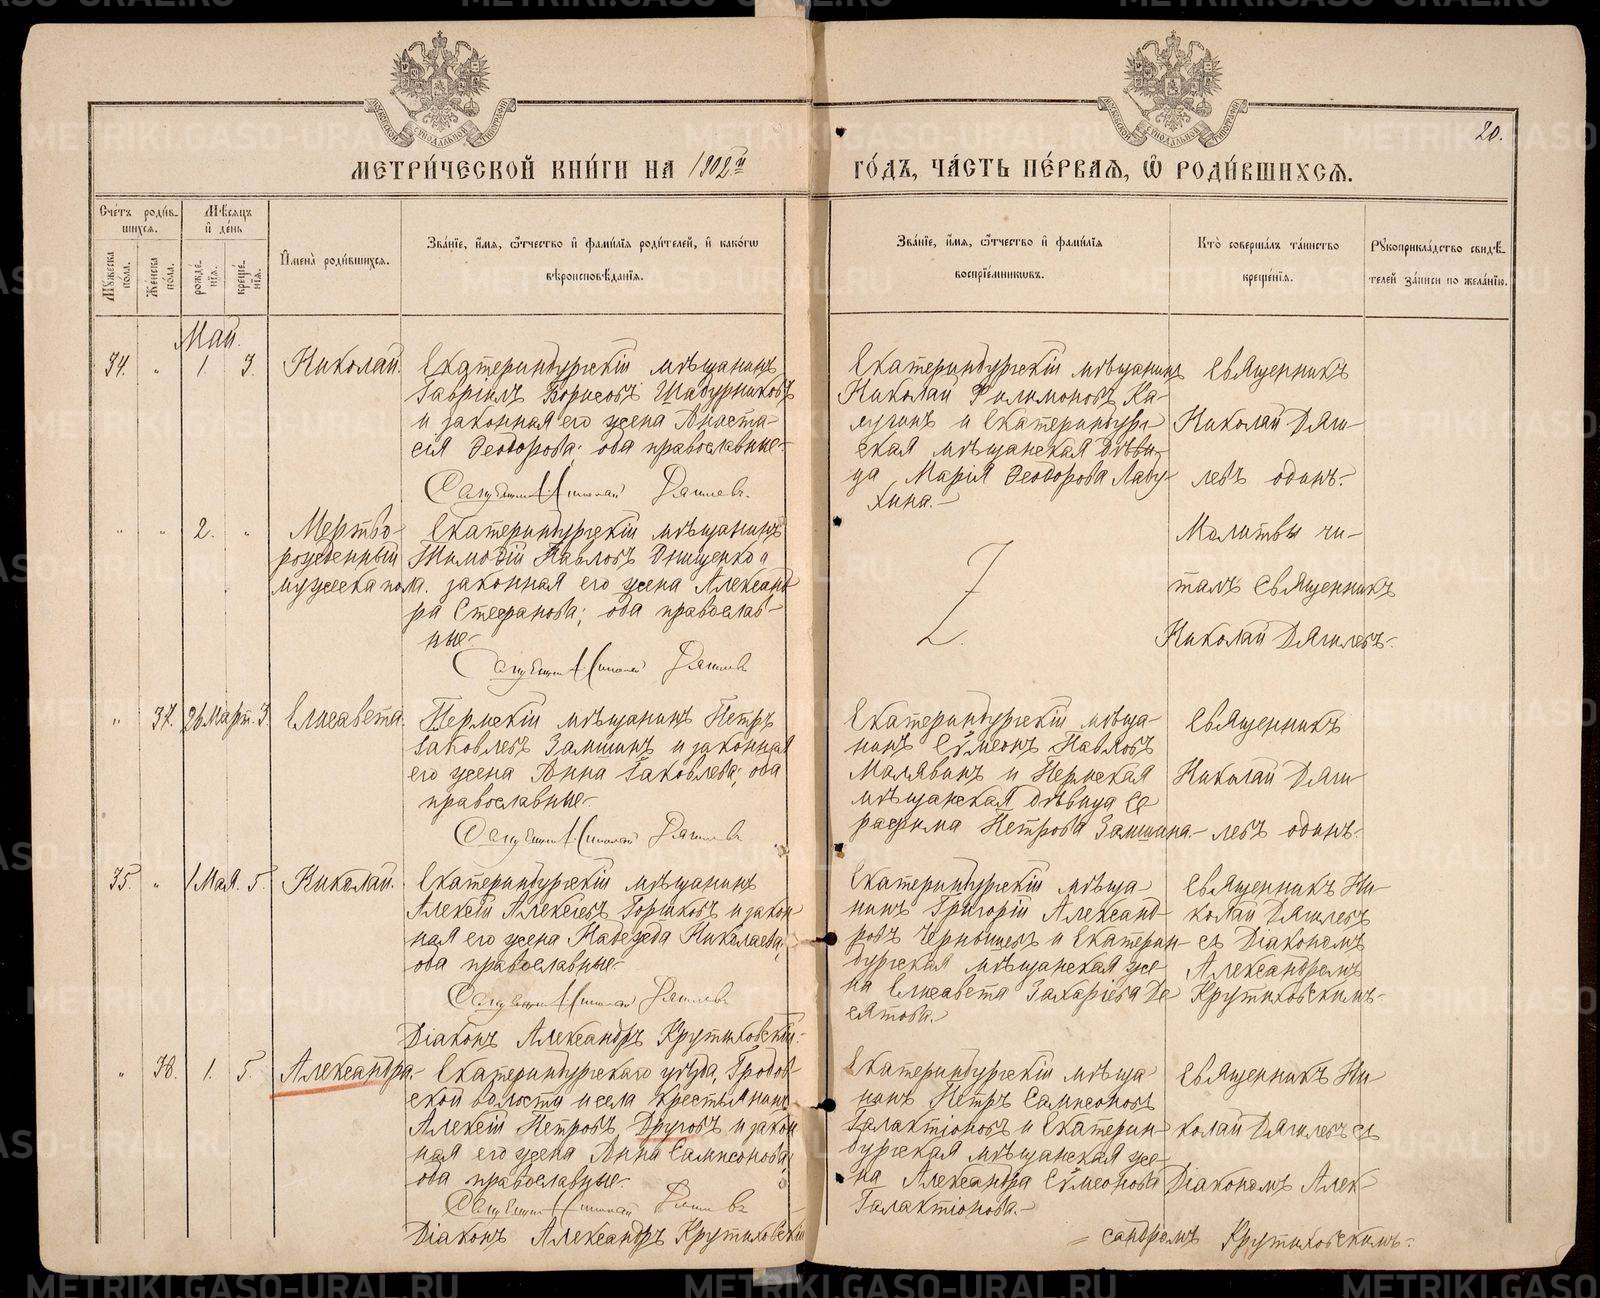 МЕТРИ́ЧЕСКОЙ КНИ́ГИ НА 1902й ГО́ДЪ, ЧА́СТЬ ПЕ́РВАЯ, Ѽ РОДИ́ВШИХСѦ.
20.
Сче́тъ роди́вшихсѧ.
Мꙋ́жеска по́ла.
Же́нска по́ла.
Мѣ́сѧцъ и҆ де́нь
рожде́нїѧ.
креще́нїѧ.
И҆мена̀ роди́вшихсѧ.
Зва́нїе, и҆́мѧ, ѻ҆́тчество и҆ фами́лїѧ роди́телей, и҆ како́гѡ
вѣроисповѣ́данїѧ.
Зва́нїе, и҆́мѧ, ѻ҆́тчество и҆ фами́лїѧ
воспрїе́мникѡвъ.
Кто̀ соверша́лъ та́инство
креще́нїѧ.
Рꙋкоприкла́дство свидѣ́телей за́писи по жела́нїю.
Май.
34. " 1. 3. Николай.
Екатеринбургскій мѣщанинъ
Гавріилъ Борисовъ Шабурниковъ
и законная его жена Анаста-
сія Ѳеодорова; оба православные.
Священникъ Николай Дягилевъ.
Екатеринбургскій мѣщанинъ
Николай Филимоновъ Ка-
лугинъ и Екатеринбург-
ская мѣщанская дѣви-
ца Марія Ѳеодорова Лабу-
хина.
Священникъ
Николай Дяги-
левъ одинъ.
" " 2. "
Мертво-
рожденный
мужеска пола.
Екатеринбургскій мѣщанинъ
Тимоѳій Павловъ Онищенко и
законная его жена Александ-
ра Стефанова; оба православ-
ные.
Священникъ Николай Дягилевъ
Z
Молитвы чи-
талъ Священникъ
Николай Дягилевъ.
" 37. 26 Март. 3. Елисавета.
Пермскій мѣщанинъ Петръ
Іаковлевъ Замшинъ и законная
его жена Анна Іаковлева; оба
православные.
Священникъ Николай Дягилевъ
Екатеринбургскій мѣща-
нинъ Сѵмеонъ Павловъ
Малявинъ и Пермская
мѣщанская дѣвица Се-
рафима Петрова Замшина.
Священникъ
Николай Дяги-
левъ одинъ.
35. " 1 Мая. 5. Николай.
Екатеринбургскій мѣщанинъ
Алексій Алексѣевъ Горшковъ и закон-
ная его жена Надежда Николаева;
оба православные.
Священникъ Николай Дягилевъ
Діаконъ Александръ Крутиховскій.
Екатеринбургскій мѣща-
нинъ Григорій Александ-
ровъ Чернышевъ и Екатерин-
бургская мѣщанская же-
на Елисавета Захаріева Де-
сятова.
Священникъ Ни-
колай Дягилевъ
съ Діакономъ
Александромъ
Крутиховскимъ.
" 38. 1. 5. Александра.
Екатеринбургскаго уѣзда, Гробов-
ской волости и села крестьянинъ
Алексій Петровъ Друговъ и закон-
ная его жена Анна Сампсонова;
оба православные.
Священникъ Николай Дягилевъ
Діаконъ Александръ Крутиховскій
Екатеринбургскій мѣща-
нинъ Петръ Сампсоновъ
Галактіоновъ и Екатерин-
бургская мѣщанская же-
на Александра Сѵмеонова
Галактіонова.
Священникъ Ни-
колай Дягилевъ съ
Діакономъ Алек-
сандромъ Крутиховскимъ.
METRIKI.GASO-URAL.RU